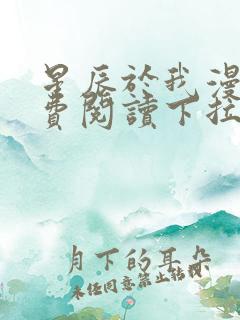 星辰於我漫
費閱讀下拉
月下的耳朵
未经同意禁止转载